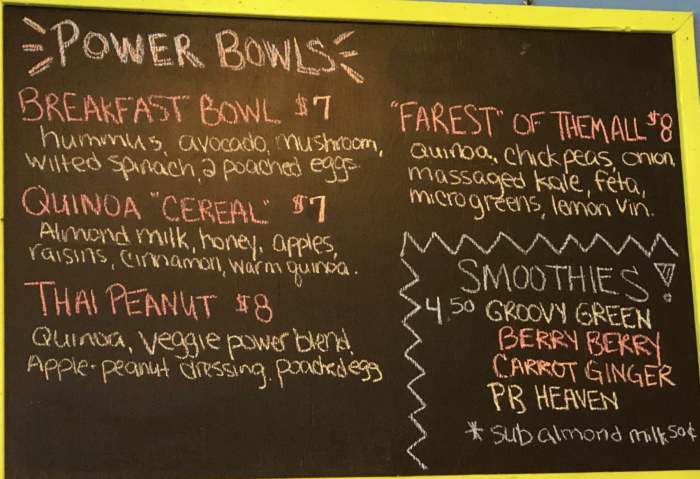 POWER BOWLS
BREAKFAST BOWL $7
hummus, avocado, mushroom,
wilted spinach, 2 poached eggs.
QUINOA "CEREAL" $7
Almond milk, honey, apples,
raisins, cinnamon, warm quinoa.
THAI PEANUT $8
Quinoa, veggie power blend,
Apple-peanut dressing, poached egg
"FAREST" OF THEM ALL $8
Quinoa, chick peas, onion,
massaged kale, feta,
microgreens, lemon vin.
SMOOTHIES!
4.50 GROOVY GREEN
BERRY BERRY
CARROT GINGER
PB HEAVEN
* sub almond milk 50¢